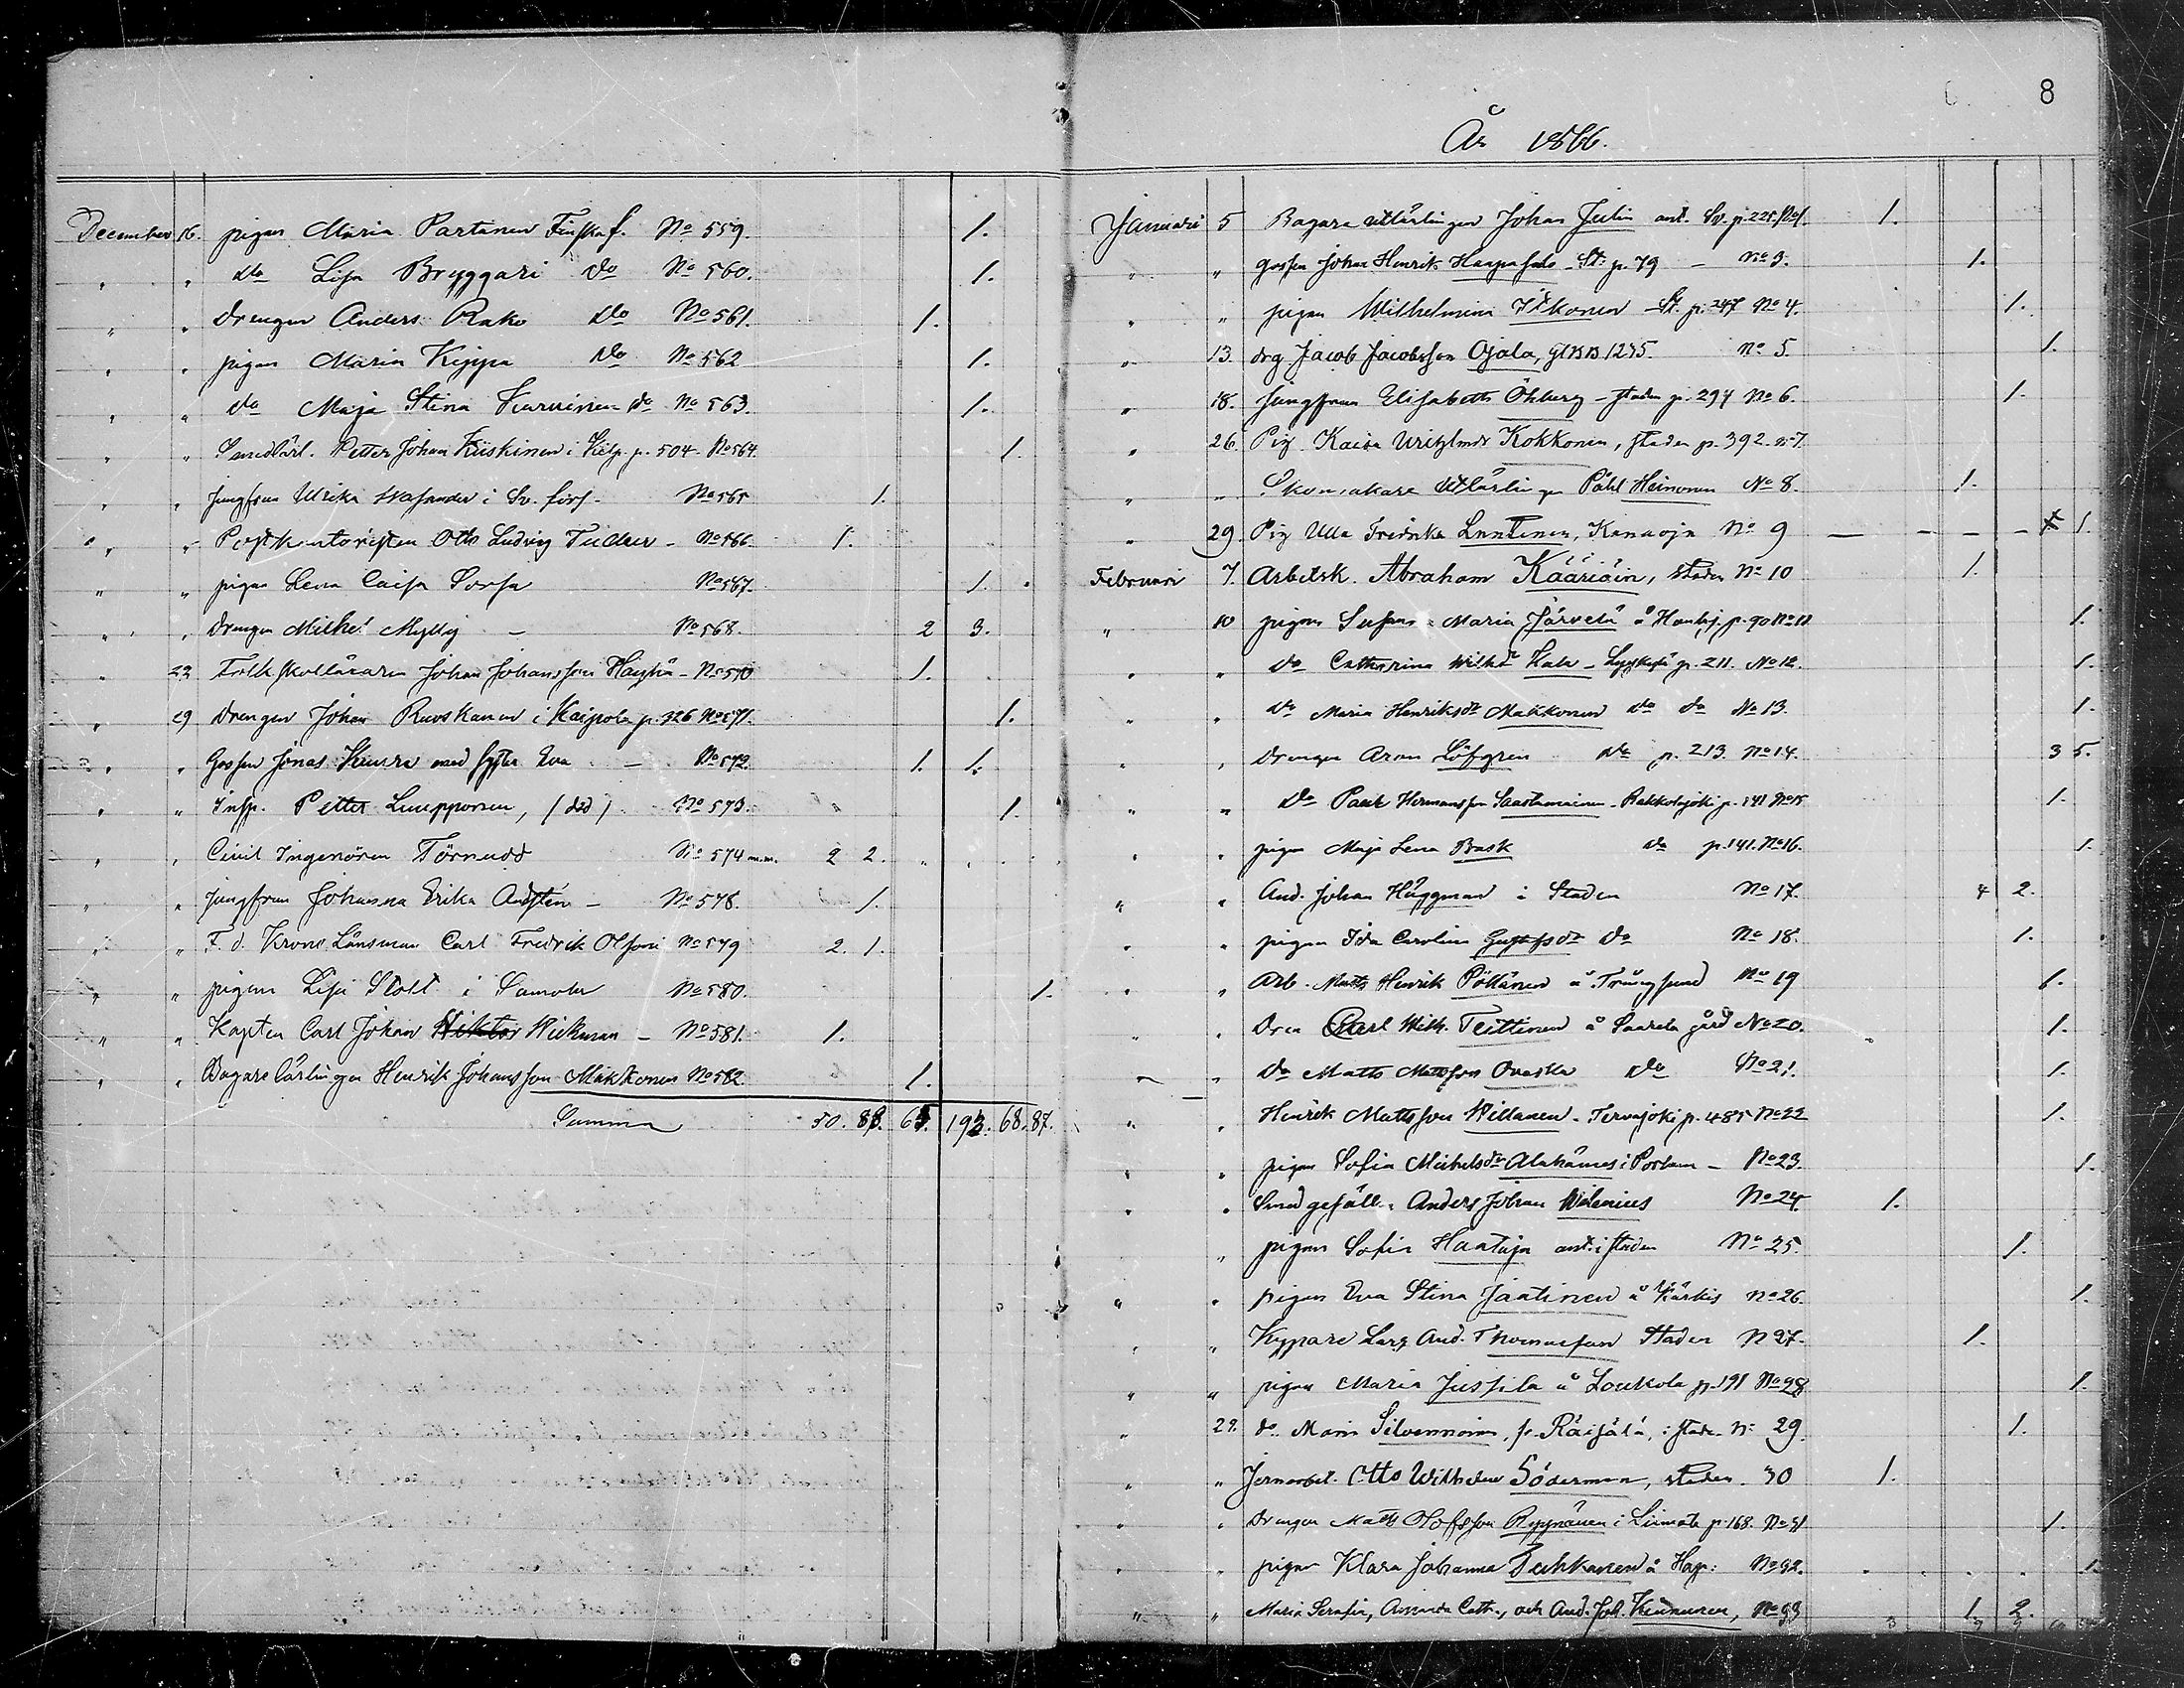 8
År 1866.
December 16. pigan Maria Partanen Finska f. No 559. 1.
" " do Lisa Bryggari do No 560. 1.
" " drengen Anders Rako do No 561. 1.
" " pigan Maria Kippa do No 562 1.
" " do Maja Stina do No 563. 1.
" " Smedlärl. Petter Johan Kiiskinen i p. 504. No 564. 1.
" " Jungfrun Ulrika i Sv. förs. No 565 1.
" " Postkontoristen Otto Ludvig Tudeer - No 566. 1.
" " pigan Lena Caisa Sorsa No 567. 1.
" " drengen Mikkel Mylly - No 568. 2 3.
" 22 Johan Johansson Häyhä - No 570 1.
" 29 drengen Johan Ruoskanen i Kaipola p. 326 No 571. 1.
" " Gossen Jonas med syster Eva - No 572. 1. 1.
" " Insp. Petter Lumpponen, (död) No 573. 1.
" " Civil Ingenören Törnudd No 574 m.m. 2 2.
" " jungfrun Johanna Erika - No 578. 1.
" " F. d. Krono Länsman Carl Fredrik No 579 2. 1.
" " pigan Lisa Stolt i Samola No 580. 1.
" " Kapten Carl Johan Wiktor Wickman - No 581. 1.
" " Bagare lärlingen Henrik Johansson Makkonen No 582. 1.
Summa 50. 88. 65. 193. 68. 87.
Januari 5 Bagare utlärlingen Johan Julin ant. Sv. p. 225. No 1. 1.
" " gossen Johan Henrik Haapasalo - St. p. 79 - No 3. 1.
" " pigan Wilhelmina Itkonen - St. p. 247 No 4. 1.
" 13. drg Jacob Jacobsson Ojala, 1245. No 5. 1.
" 18. Jungfrun Elisabeth Öhberg - staden p. 294 No 6. 1.
" 26. Pig. Kaisa Kokkonen, staden p. 392. No 7.
" " Skomakare Utlärlingen Påhl Heinonen No 8. 1.
" 29. Pig Ulla Fredrika Lunttinen, Kananoja No 9 1.
Februari 7. Arbetsk. Abraham Kääriäin, staden No 10 1.
" 10 pigan Susanna Maria Järvelä p. 90 No 11 1.
" " do Catharina Wilhdr p. 211. No 12. 1.
" " do Maria Henriksdr Makkonen do do No 13. 1.
" " drengen Aron Löfgren do p. 213. No 14. 3 5.
" " do Paul Hermansson Saastamoinen - Rakkolajoki p. 141 No 15 1.
" " pigan Maja Lena Brask do p. 141. No 16. 1.
" " And. Johan Häggman i Staden No 17. 4 2.
" " pigan Ida Carolina Gustafsdr do No 18. 1.
" " Arb. Matts Henrik Pöllänen å Trångsund No 19 1.
" " Dren Carl Wilh. Teittinen å Saarela gård No 20. 1.
" " do Matts Mattsson Ovaska do No 21. 1.
" " Henrik Mattsson Willanen - Tervajoki p. 485 No 22 1.
" " pigan Sofia Michelsdr i Portan - No 23. 1.
" " Smedgesäll. Anders Johan Wilenius No 24. 1.
" pigan Sofia Hantoja ant. i staden No 25. 1.
" " pigan Eva Stina Jaatinen å Kärkis No 26. 1.
" " Kypare Lars And. Thomasson Staden N 27. 1.
" " pigan Maria Jussila å Loukola p. 191 No 28 1.
" 22. do. Maria Silvennoinen, fr. Räisälä, i staden N: 29. 1.
" " Jernarbet. Otto Wilhelm Söderman, staden. 30 1.
" " Drengen Matts Olofsson Reppänen i Liimata p. 168. No 31 1.
" " pigan Klara Johanna å No 32. 1.
" " Maria Serafia, Amanda Cath., och And. Joh. No 33 1. 2.